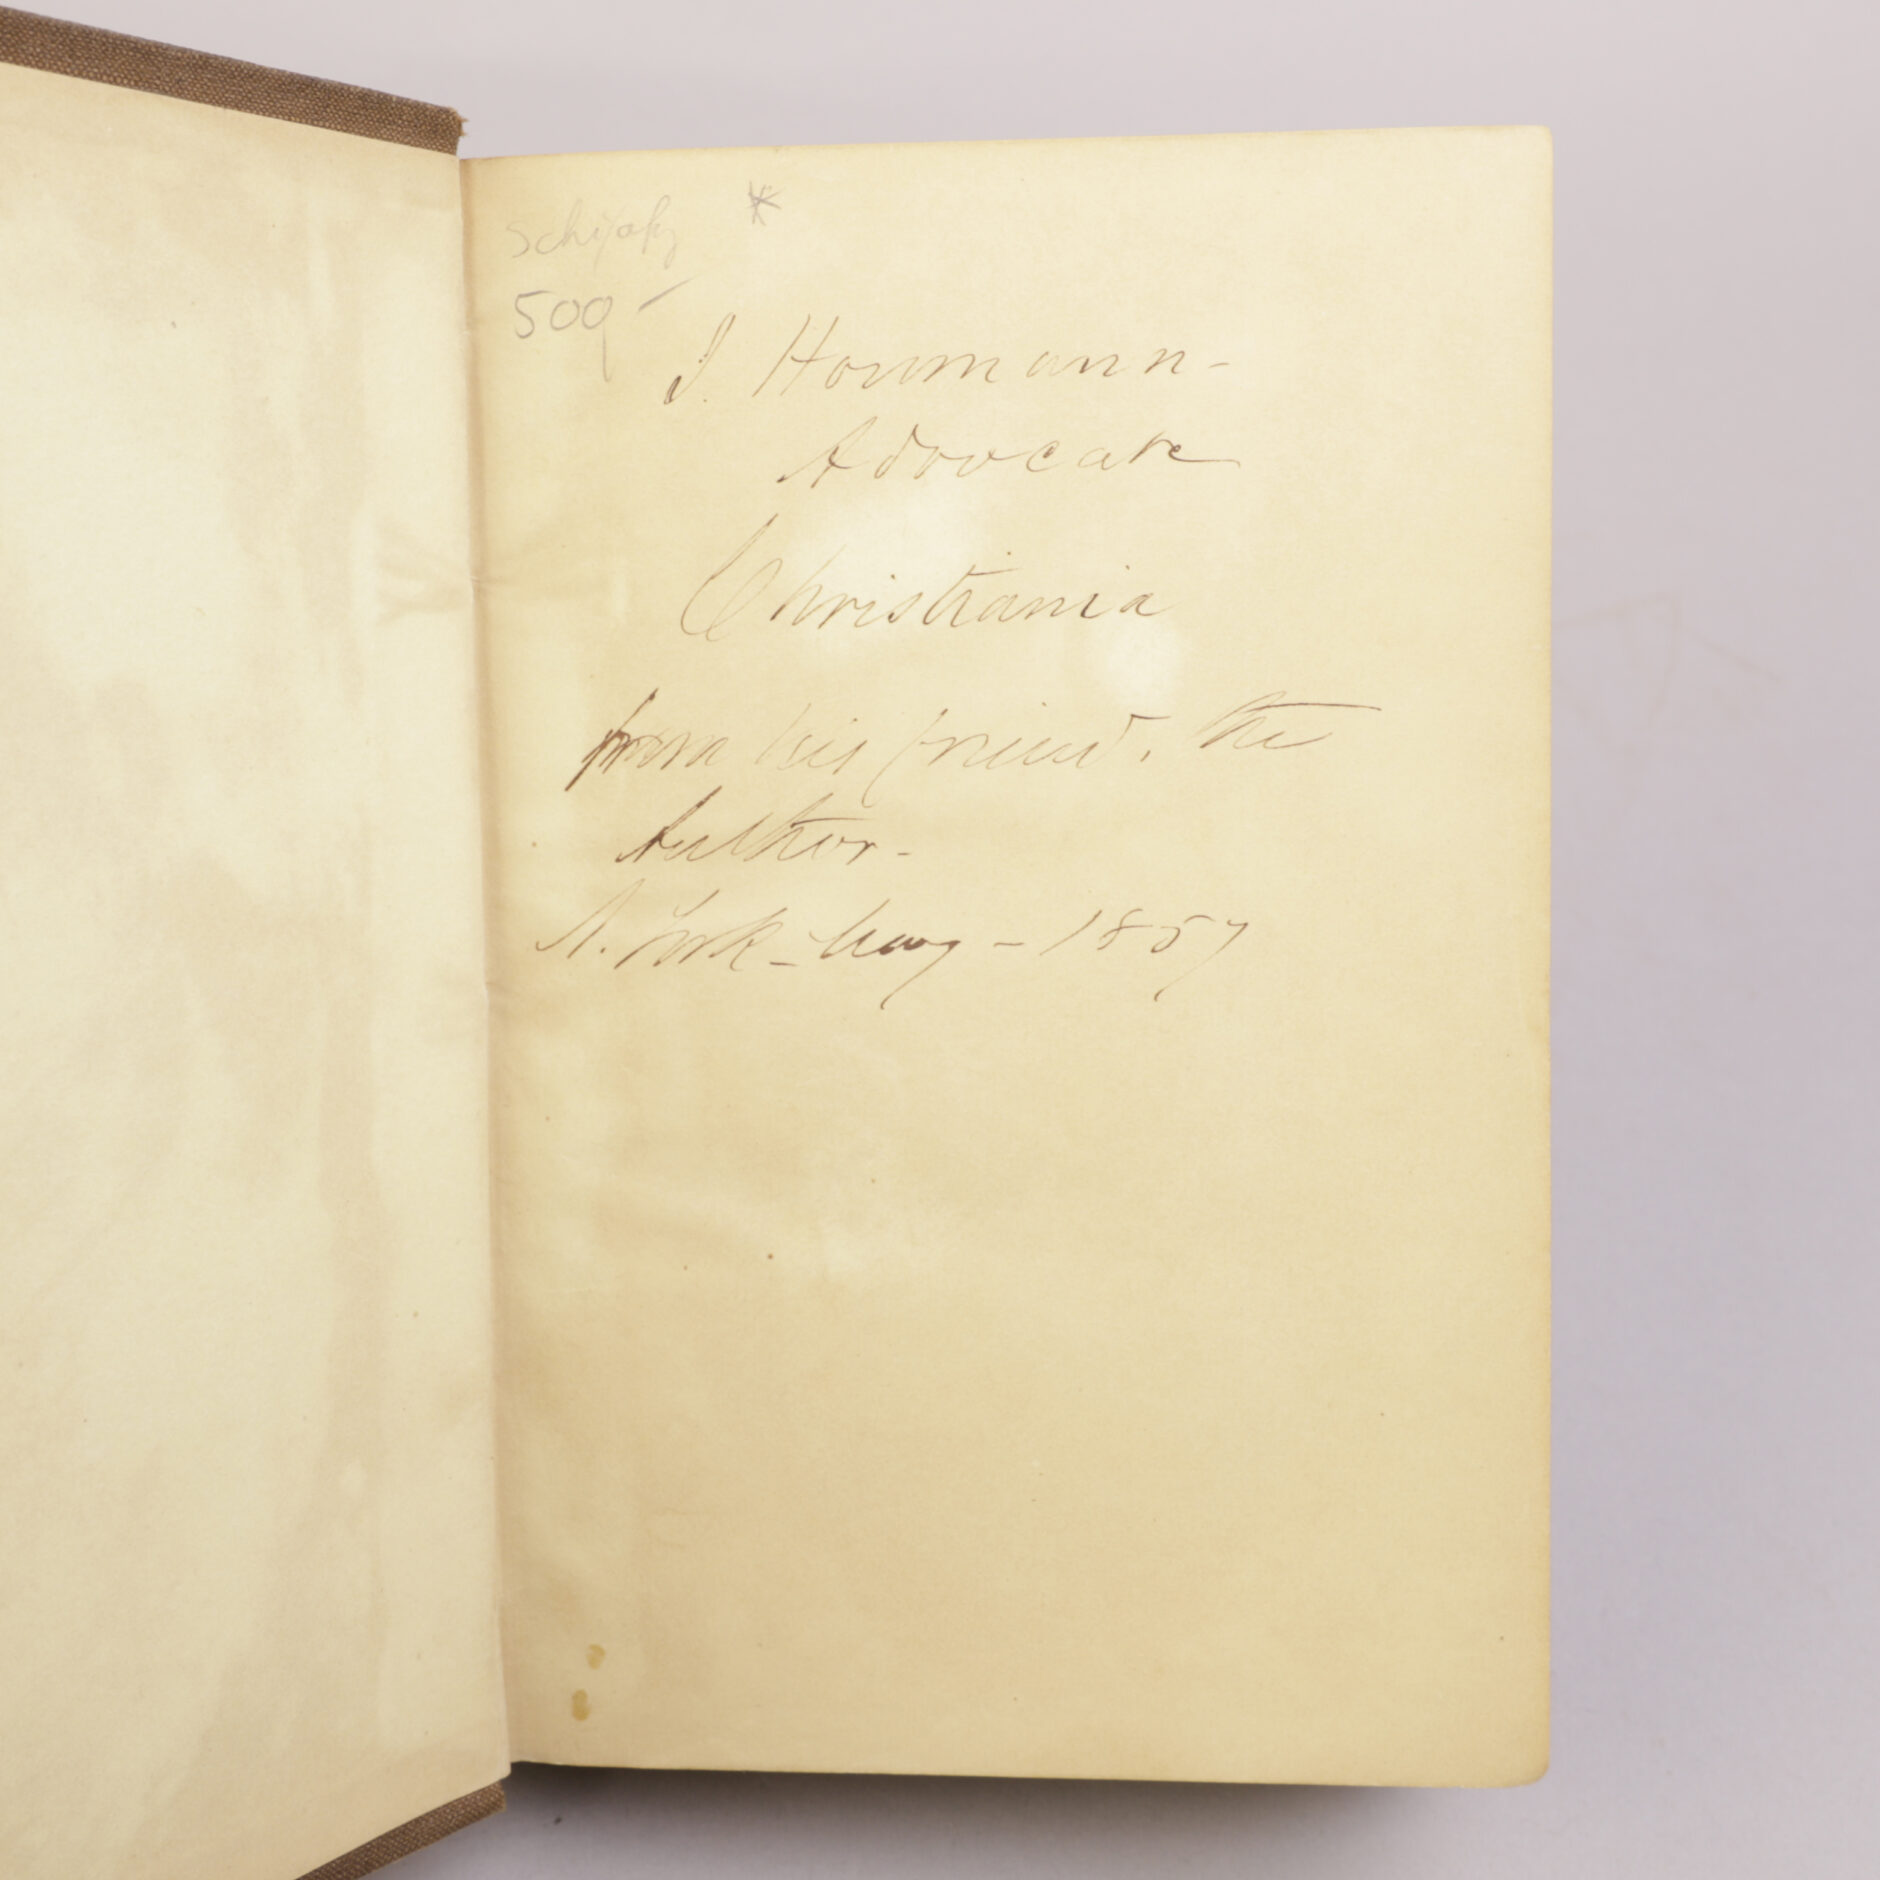 500
J. Houmann -
Advocate
Christiania
from his friend, the
Author -
N. York - May - 1857